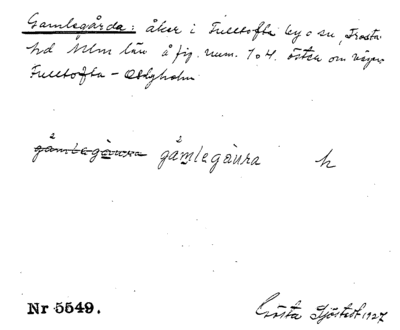 Gamlegårda: åker i Fulltofta by o sn, Frosta
hd Mlm län å fig. num. 1 o 4. öster om vägen
Fulltofta - Ostgholm
gåmlegåura gåmlegåura h
Nr 5549.
Gösta Sjöstedt 1927